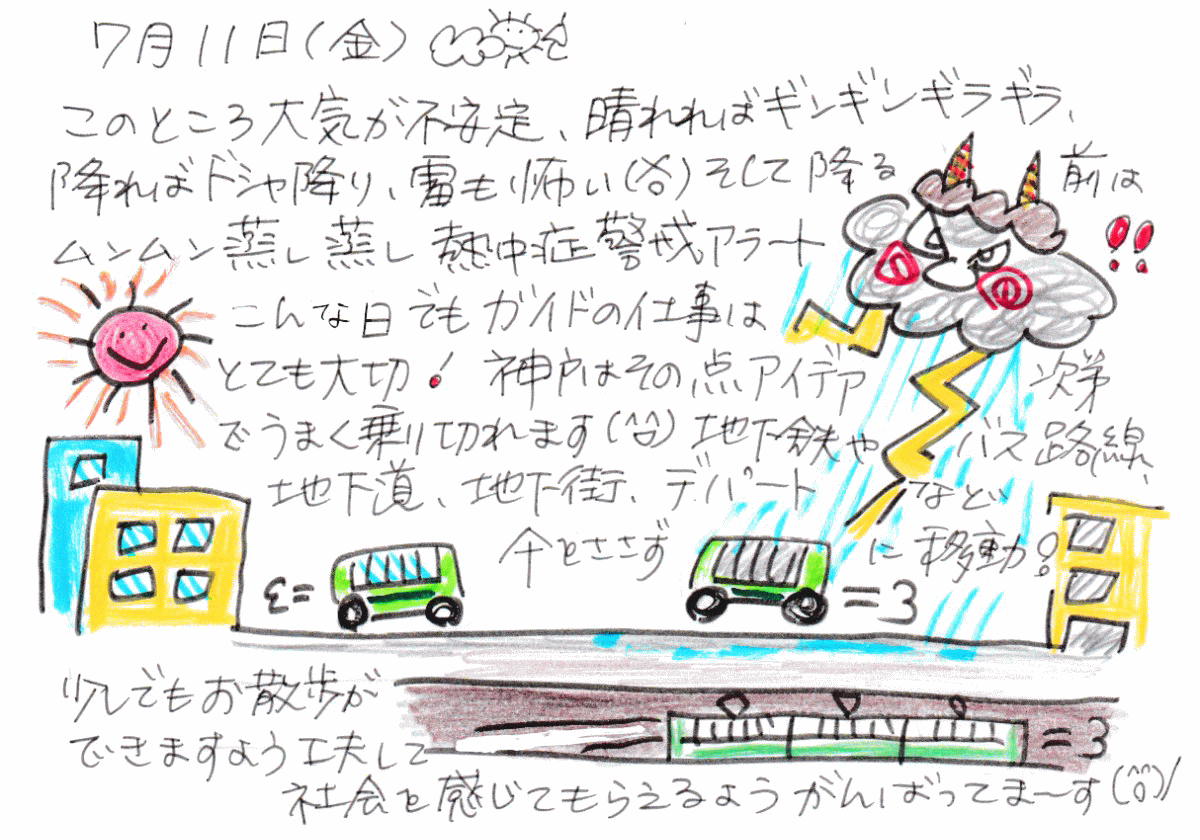 7月11日(金)
このところ大気が不安定、晴れればギンギンギラギラ、
降ればドシャ降り、雷も怖い(>o<)そして降る前は
ムンムン蒸し蒸し熱中症警戒アラート!!
こんな日でもガイドの仕事は
とても大切! 神戸はその点アイデア次第
でうまく乗り切れます(^o^)地下鉄やバス路線、
地下道、地下街、デパートなど、
傘をささずに移動?
少しでもお散歩が
できますよう工夫して
社会を感じてもらえるようがんばってま〜す(^o^)/